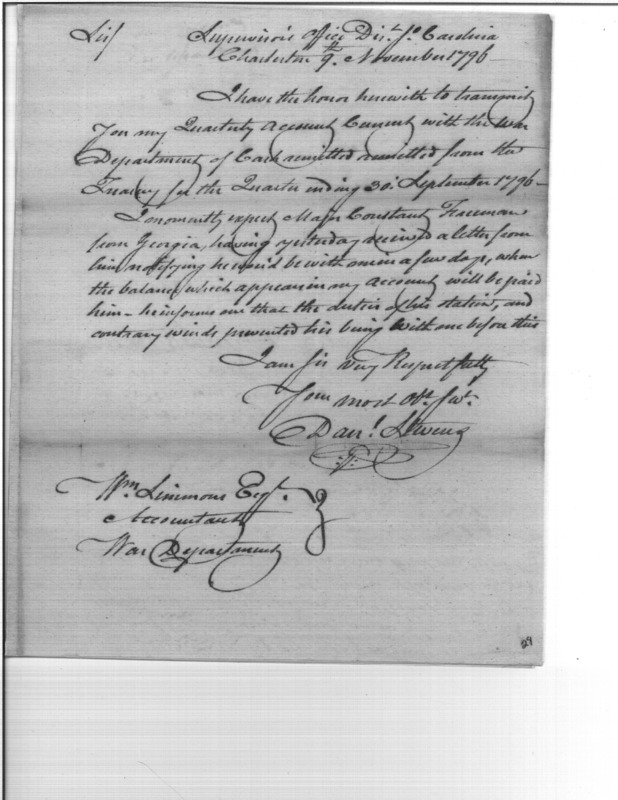 Sir/ Supervisor's Office Dist. So. Carolina
Charleston 9th. November 1796
I have the honor herewith to transmit
You my Quarterly Account Current with the War
Department of Cash remitted remitted from the
Treasury for the Quarter ending 30. September 1796 -
I momently expect Major Constant Freeman
from Georgia, having yesterday received a letter from
him notifying he wou'd be with me in a few days, when
the balance which appears in my Account will be paid
him - he informs me that the duties of his station, and
contrary winds prevented his being with me before this
I am Sir very Respectfully
Your most Obt. Svt.
Danl. Stevens
Wm. Simmons Esqr.
Accountant
War Department
29